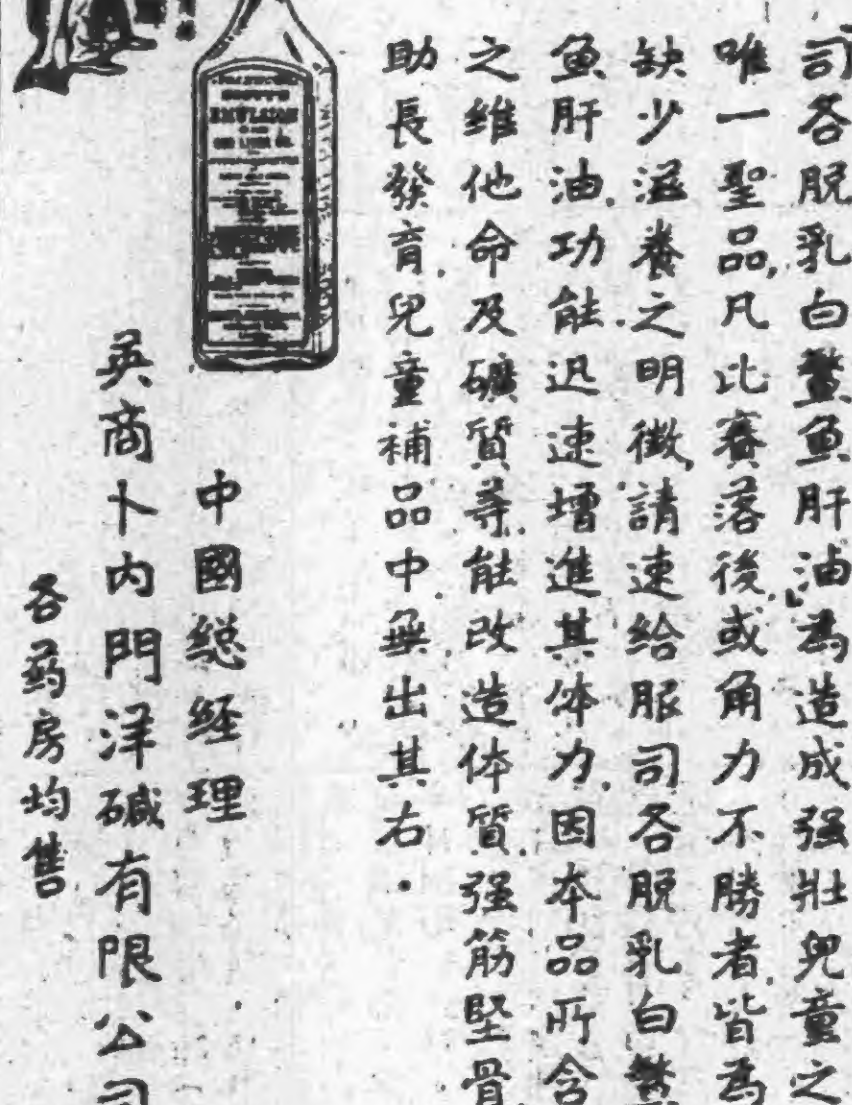 司各脱乳白鰵魚肝油為造成强壯兒童之
唯一聖品,凡比賽落後,或角力不勝者,皆為
缺少滋養之明徵,請速給服司各脱乳白鰵
魚肝油,功能迅速增進其体力,因本品所含
之維他命及礦質等,能改造体質,强筋堅骨
助長發育,兒童補品中,無出其右.
中國総経理
英商卜内門洋碱有限公司
各葯房均售
EMULSION